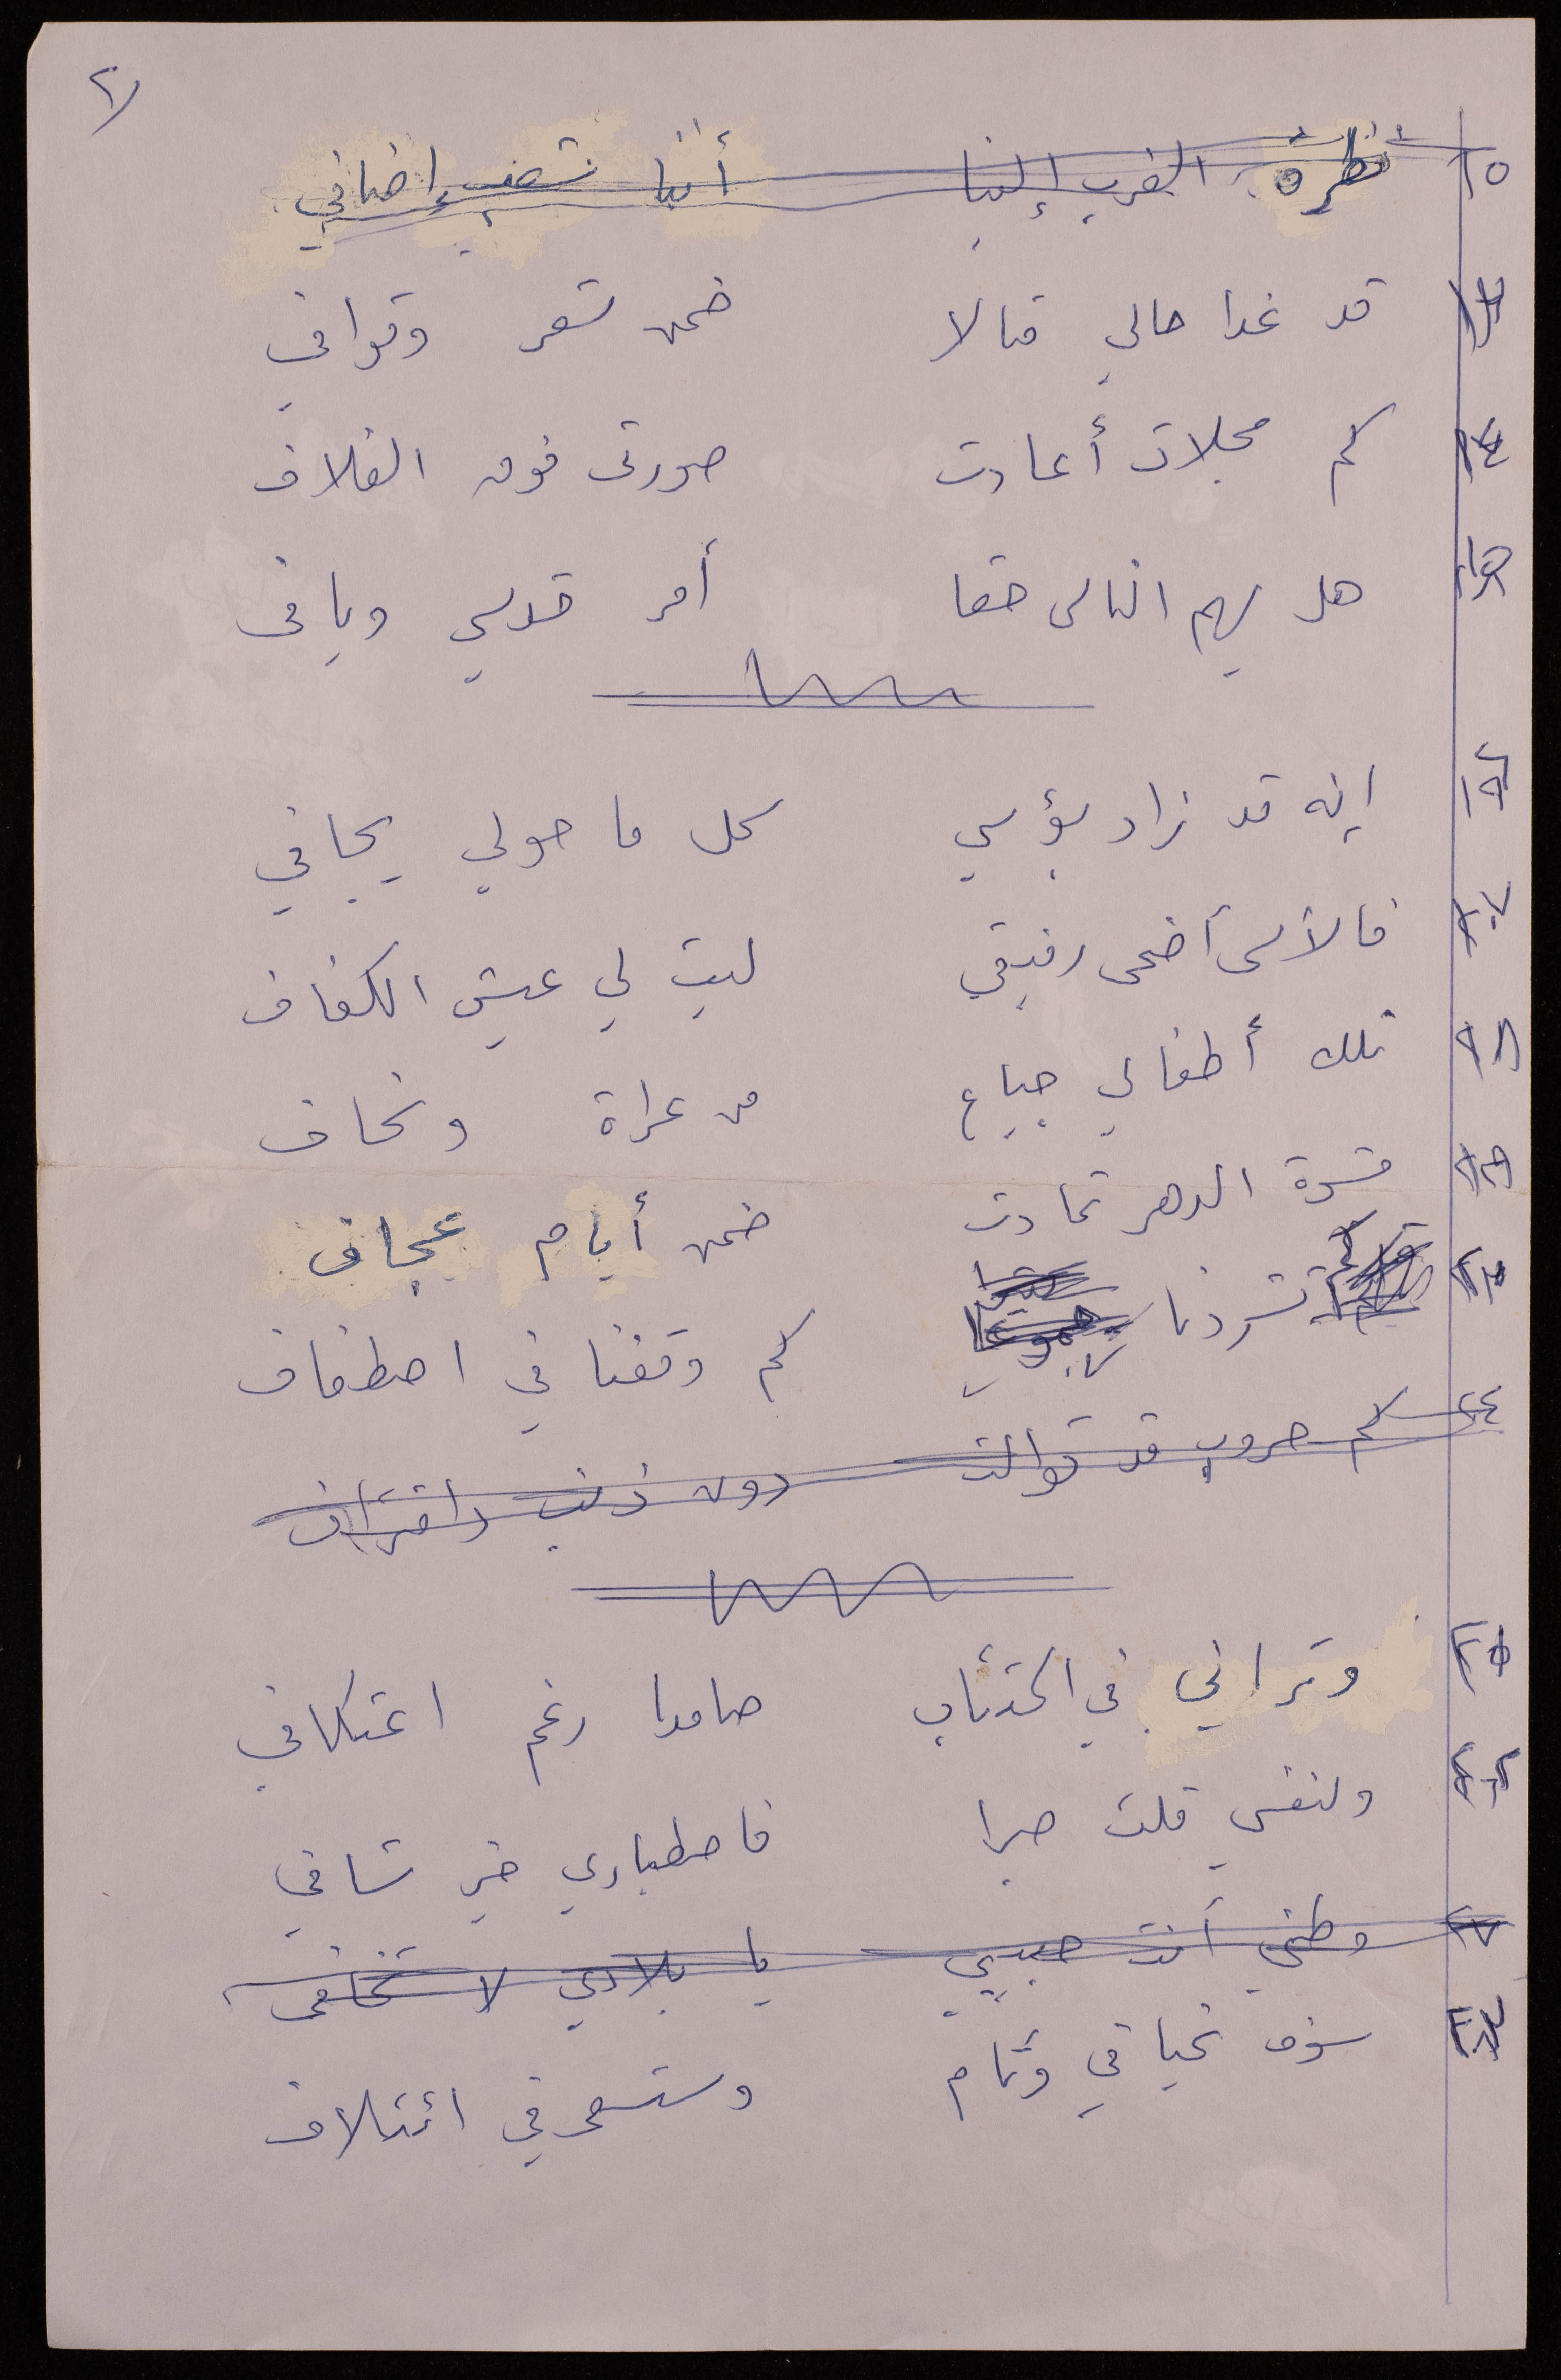 ٢
نظرة الغرب إلينا أننا شعب إضافي
قد غدا حالي مقالا ضمن شعر وقوافي
كم مجلات أعادت صورتي فوق الغلاف
هل يهم الناس حقا أمر قدسي ويافي
إنه قد زاد بؤسي كل ما حولي يجافي
فالأسى أضحى رفيقي ليت لي عيش الكفاف
تلك أطفالي جياع من عراة ونحاف
قسوة الدهر تمادت ضمن أيام عجاف
كم تشردنا كم وقفنا في اصطفاف
٢٤ كم حروب قد توالت دون ذنب واقتراف
٢٥ وتراني في اكتئاب صامدا رغم اعتكافي
ولنفسي قلت صبرا فاصطباري خير شافي
٢٧ وطني أنت حبيبي يا بلادي لا تخافي
سوف نحيا في وئام وسنسعى في ائتلاف